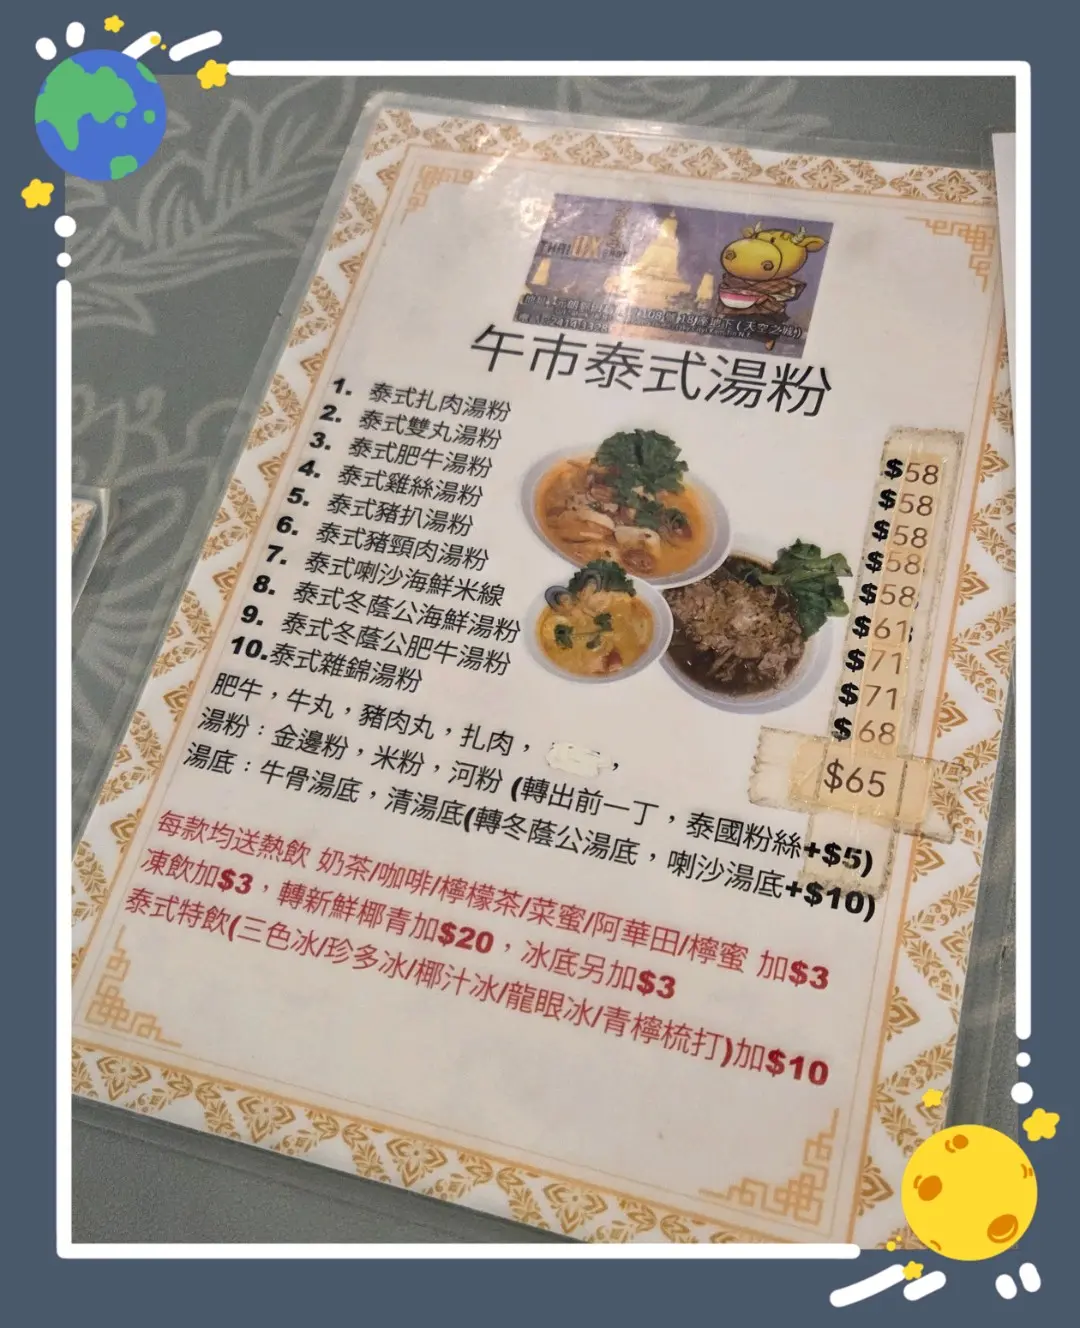 THAI OX
午市泰式湯粉
1. 泰式扎肉湯粉 $58
2. 泰式雙丸湯粉 $58
3. 泰式肥牛湯粉 $58
4. 泰式雞絲湯粉 $58
5. 泰式豬扒湯粉 $58
6. 泰式豬頸肉湯粉 $61
7. 泰式喇沙海鮮米線 $71
8. 泰式冬蔭公海鮮湯粉 $71
9. 泰式冬蔭公肥牛湯粉 $68
10.泰式雜錦湯粉 $65
肥牛，牛丸，豬肉丸，扎肉，
湯粉：金邊粉，米粉，河粉 (轉出前一丁，泰國粉絲+$5)
湯底：牛骨湯底，清湯底(轉冬蔭公湯底，喇沙湯底+$10)
每款均送熱飲 奶茶/咖啡/檸檬茶/菜蜜/阿華田/檸蜜 加$3
凍飲加$3，轉新鮮椰青加$20，冰底另加$3
泰式特飲(三色冰/珍多冰/椰汁冰/龍眼冰/青檸梳打)加$10